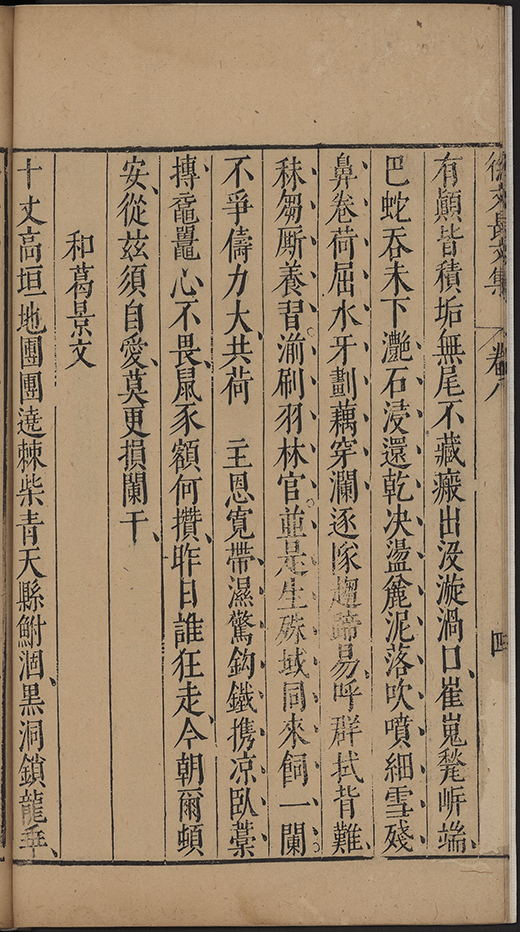 徐文長文集 卷八 四
有顛皆積垢無尾不藏瘢出没漩渦口崔嵬甃岓端
巴蛇吞未下灧石浸還乾决盪麄泥落吹噴細雪殘
鼻卷荷屈水牙劃藕穿瀾逐隊趨蹄易呼群拭背難
秣芻厮養習湔刷羽林官並是生殊域同來飼一闌
不爭儔力大共荷 主恩寛帶濕驚鈎鐵携凉臥藁
摶黿鼉心不畏鼠豕額何攢昨日誰狂走今朝爾頓
安從兹須自愛莫更損闌干
和葛景文
十丈高垣地團團遶棘柴青天縣鮒涸黒洞鎖龍乖